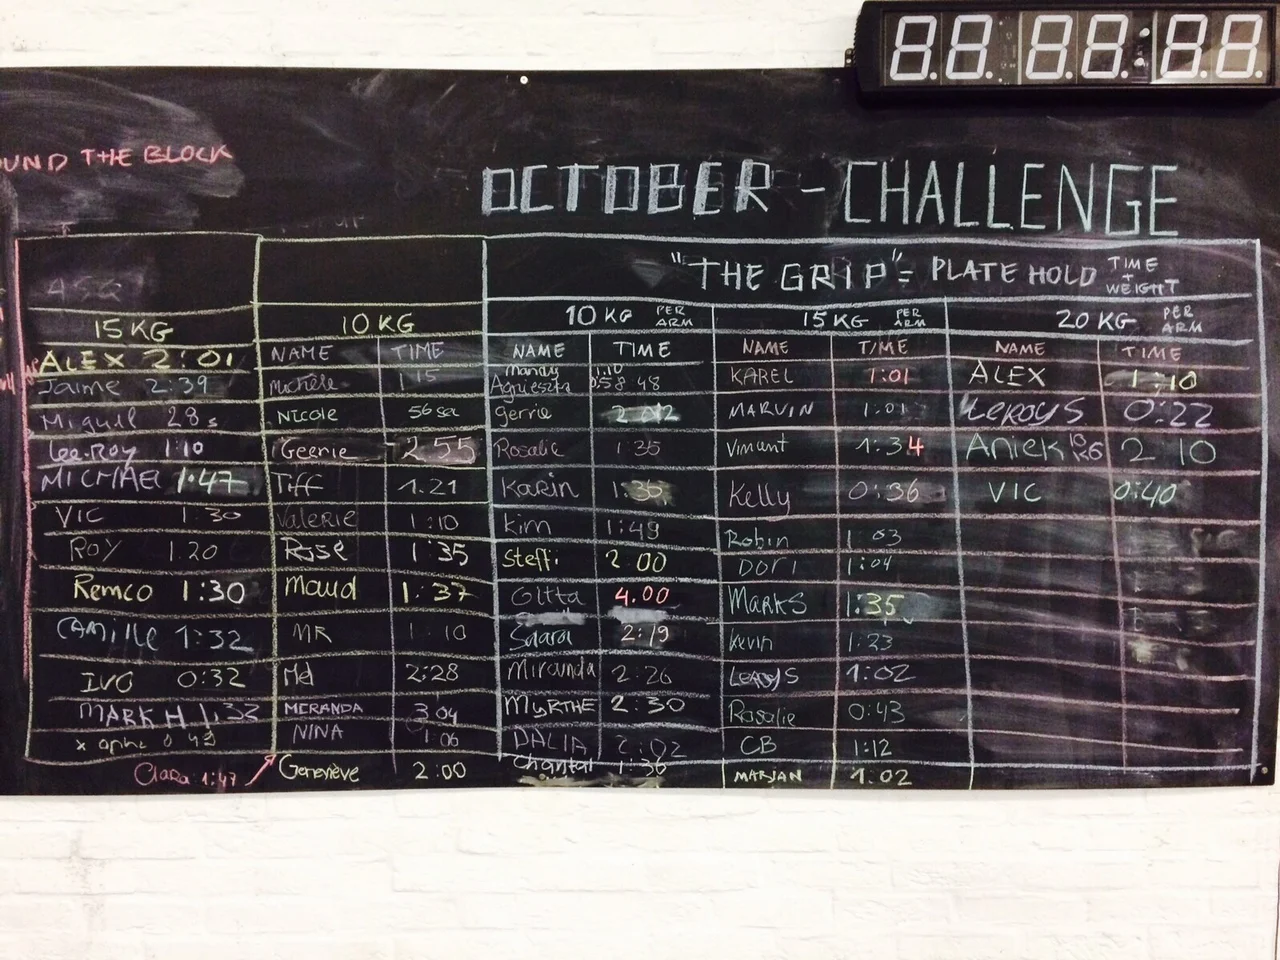 88:88:88
UND THE BLOCK
OCTOBER - CHALLENGE
"THE GRIP" = PLATE HOLD TIME + WEIGHT
15 KG
ALEX 2:01
Jaime 2:39
Miguel 28s
Lee.Roy 1:10
MICHAEL 1:47
VIC 1:30
ROY 1:20
Remco 1:30
CAMILLE 1:32
IVO 0:32
MARK H 1:33
Clara 1:47
10 KG
NAME TIME
Michèle 1:15
Nicole 56 sec
Geerie 2:55
Tiff 1.21
Valerie 1:10
Rose 1:35
Maud 1:37
MR 1:10
Mel 2:28
MERANDA 3 04
NINA 1:06
Geneviève 2:00
10 KG PER ARM
NAME TIME
Mandy 1.10
Agnieszka 0:58 48
Gerrie 2:02
Rosalie 1:35
Karin 1:36
Kim 1:49
Steffi 2:00
Gitta 4.00
Saarai 2:19
Miranda 2:26
MYRTHE 2:30
DALIA 2:02
Chantal 1:36
15 KG PER ARM
NAME TIME
KAREL 1:01
MARVIN 1:01
Vincent 1:34
Kelly 0:36
Robin 1:03
DORI 1:04
MARKS 1:35
Kevin 1:23
LEROYS 1:02
Rosalie 0:43
CB 1:12
MARJAN 1:02
20 KG PER ARM
NAME TIME
ALEX 1:10
LEROYS 0:22
Aniek 10 KG 2 10
VIC 0:40